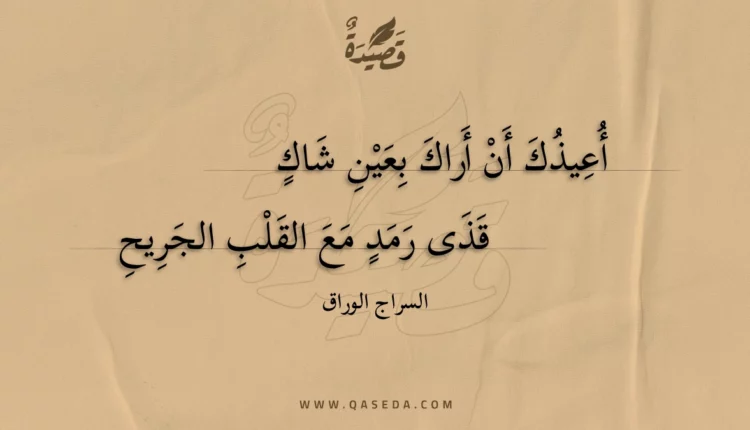 قَصِيدَةٌ
أُعِيذُكَ أَنْ أَراكَ بِعَيْنِ شَاكٍ
قَذَى رَمَدٍ مَعَ القَلْبِ الجَرِيحِ
السراج الوراق
WWW.QASEDA.COM